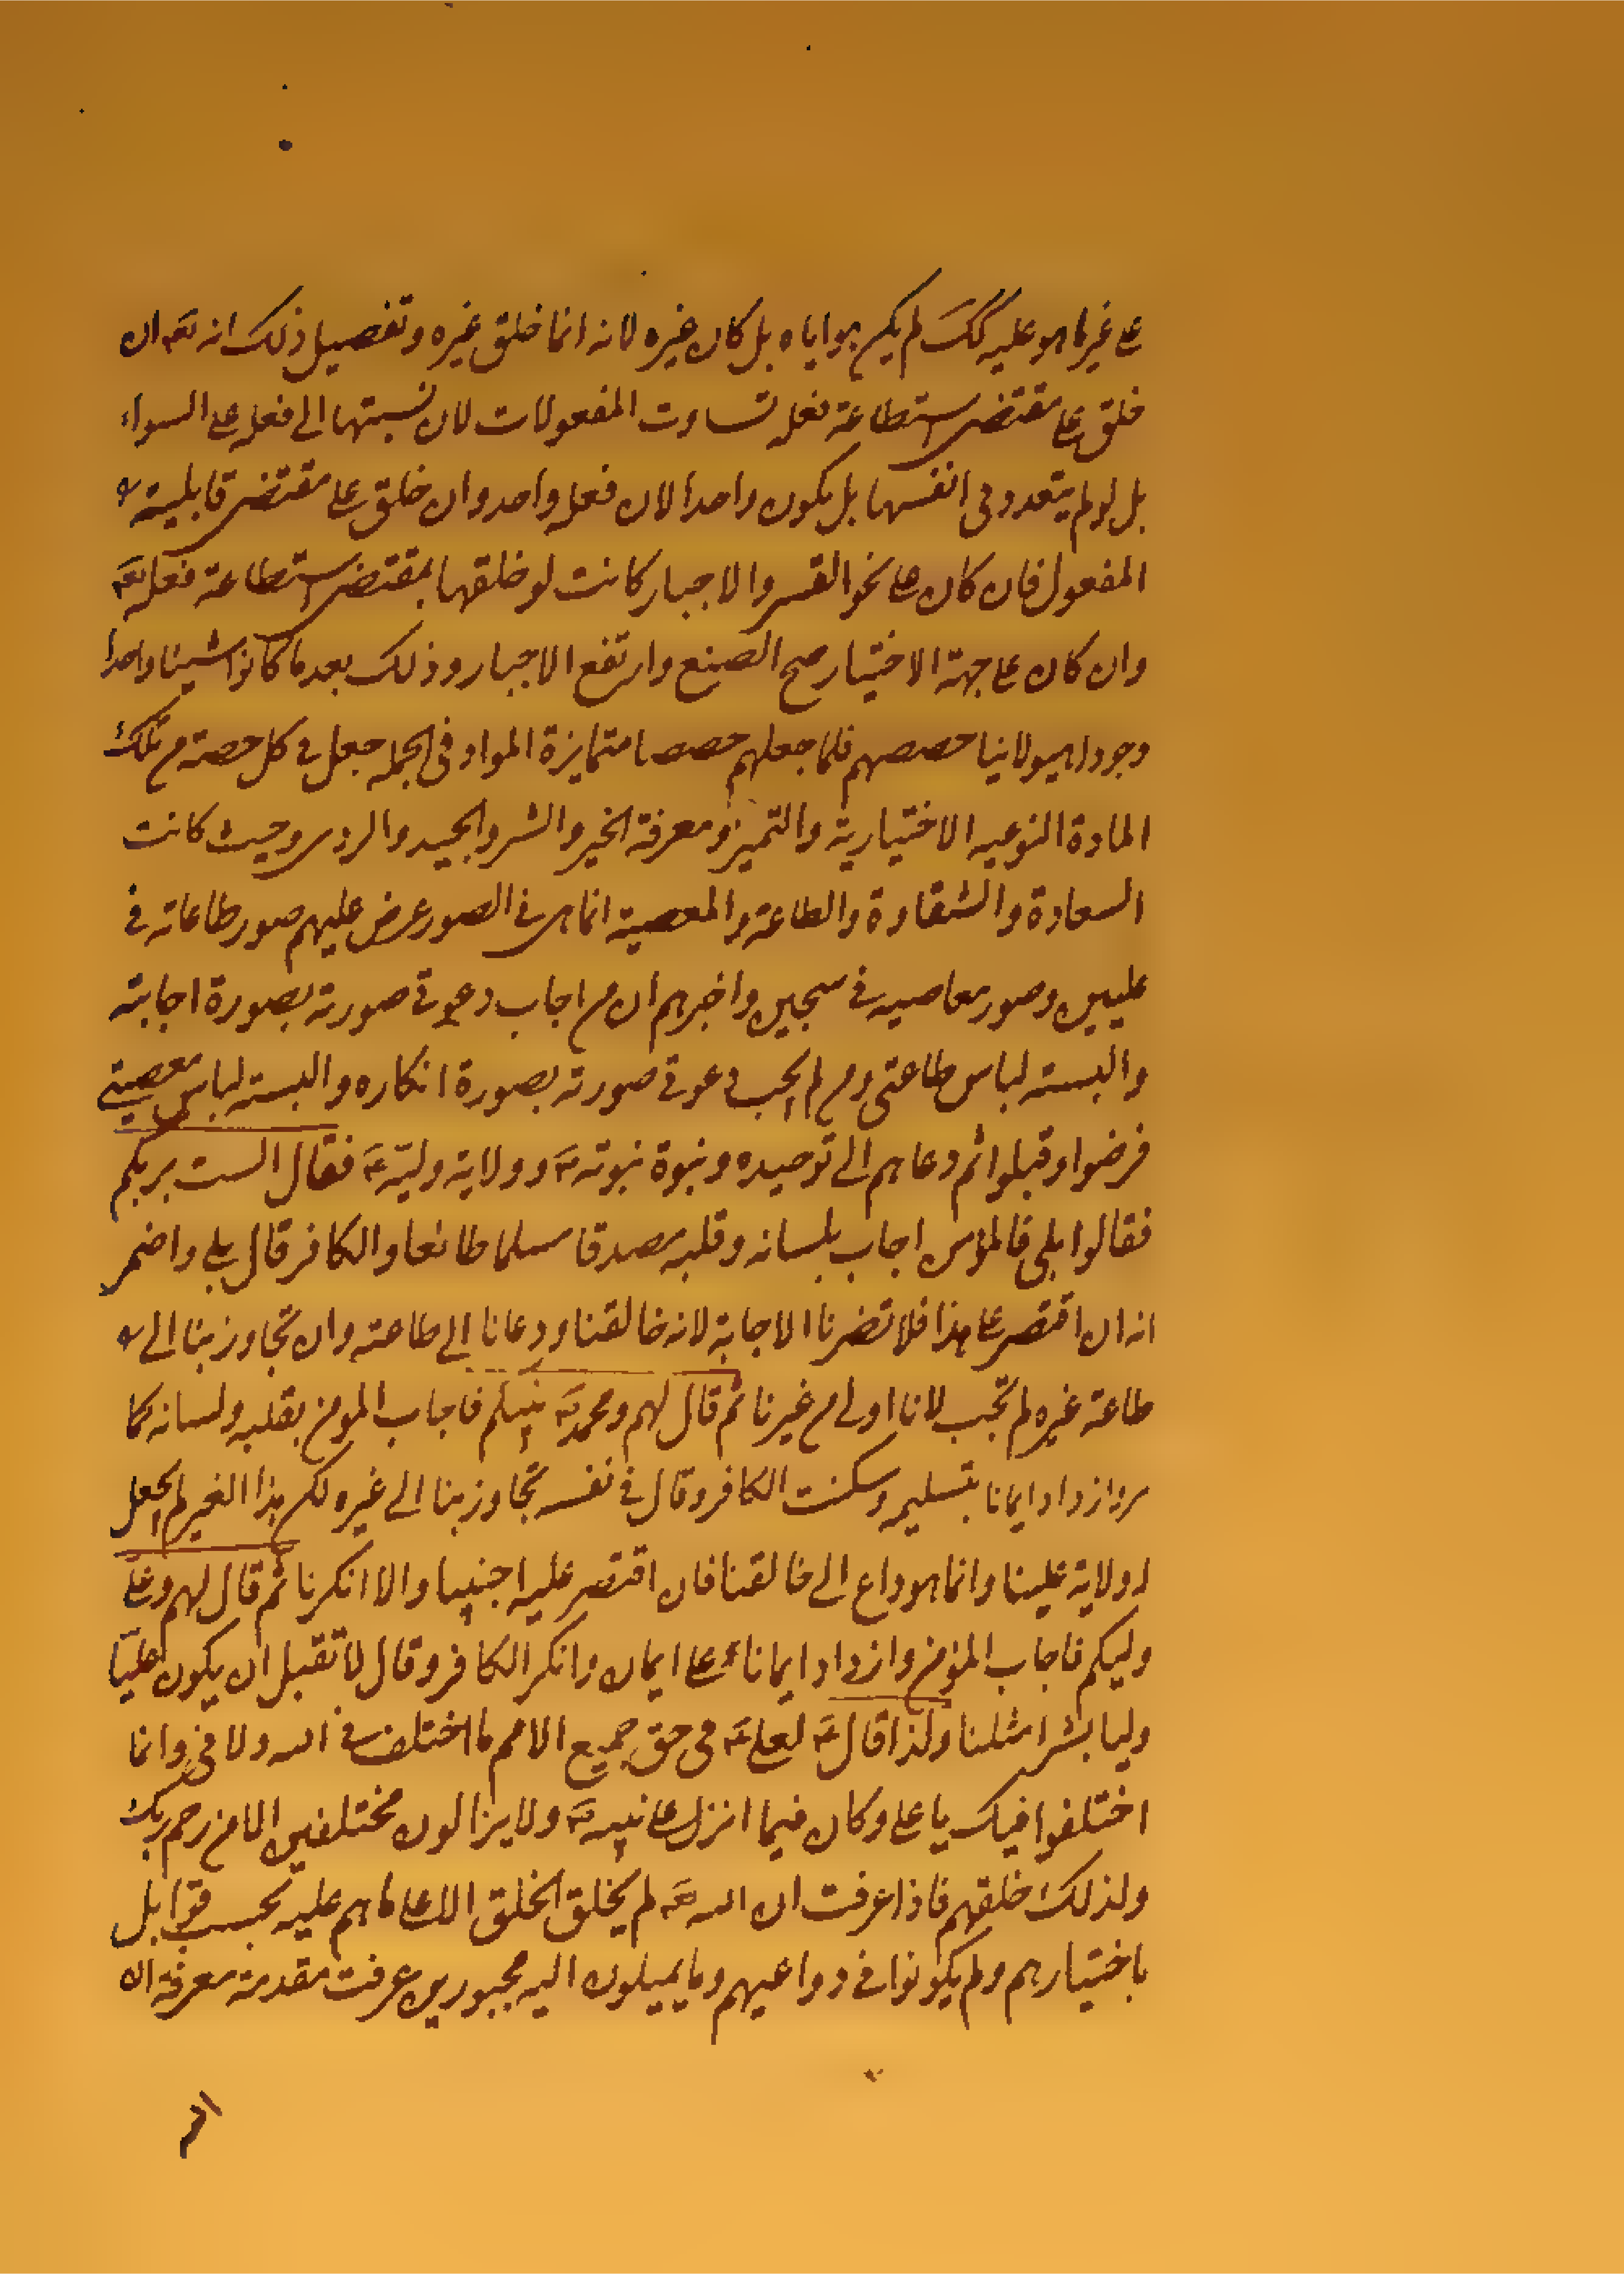 على غير ما هو عليه كك لم يكن هو اياه بل كان غيره لانه انما خلق غيره وتفصيل ذلك انه تع ان
خلق على مقتضى استطاعة فعله تساوت المفعولات لان نسبتها الى فعله على السواء
بل لو لم يتعدد فى انفسها بل يكون واحدا لان فعله واحد وان خلق على مقتضى قابلية
المفعول فان كان على نحو القسر والاجبار كانت لو خلقها بمقتضى استطاعة فعله تع
وان كان على جهة الاختيار صح الصنع وارتفع الاجبار وذلك بعد ما كانوا شيئا واحدا
وجودا هيولانيا حصصهم فلما جعلهم حصصا متمايزة المواد فى الجملة جعل فى كل حصة من تلك
المادة النوعيه الاختيارية والتميز ومعرفة الخير والشر والجيد والردى وحيث كانت
السعادة والشقاوة والطاعة والمعصية انما هى فى الصور عرض عليهم صور طاعاته فى
عليين وصور معاصيه فى سجين واخبرهم ان من اجاب دعوتى صورته بصورة اجابته
والبسته لباس طاعتى ومن لم يجب دعوتى صورته بصورة انكاره والبسته لباس معصيتى
فرضوا وقبلوا ثم دعاهم الى توحيده ونبوة نبوته ص وولاية وليه ع فقال الست بربكم
فقالوا بلى فالمؤمن اجاب بلسانه وقلبه مصدقا مسلما طائعا والكافر قال بلى واضمر
انه ان اقتصر على هذا فلا تضرنا الاجابة لانه خالقنا ودعانا الى طاعته وان تجاوز بنا الى
طاعة غيره لم نجب لانا اولى من غيرنا ثم قال لهم ومحمد ص نبيكم فاجاب المومن بقلبه ولسانه كما
مر وازداد ايمانا بتسليمه وسكت الكافر وقال فى نفسه تجاوز بنا الى غيره لكن هذا الغير لم يجعل
له ولاية علينا وانما هو داع الى خالقنا فان اقتصر عليه اجبنا والا انكرنا ثم قال لهم وعلى
وليكم فاجاب المؤمن وازداد ايمانا على ايمان وانكر الكافر وقال لا نقبل ان يكون علينا
وليا بشرا مثلنا ولذا قال ص لعلى ع فى حق جميع الامم ما اختلف فى الله ولا فى وانما
اختلفوا فيك يا على وكان فيما انزل على نبيه ص ولا يزالون مختلفين الا من رحم ربك
ولذلك خلقهم فاذا عرفت ان الله تع لم يخلق الخلق الا على ما هم عليه بحسب قوابل
باختيارهم ولم يكونوا فى دواعيهم وما يميلون اليه مجبورين عرفت مقدمة معرفة ان